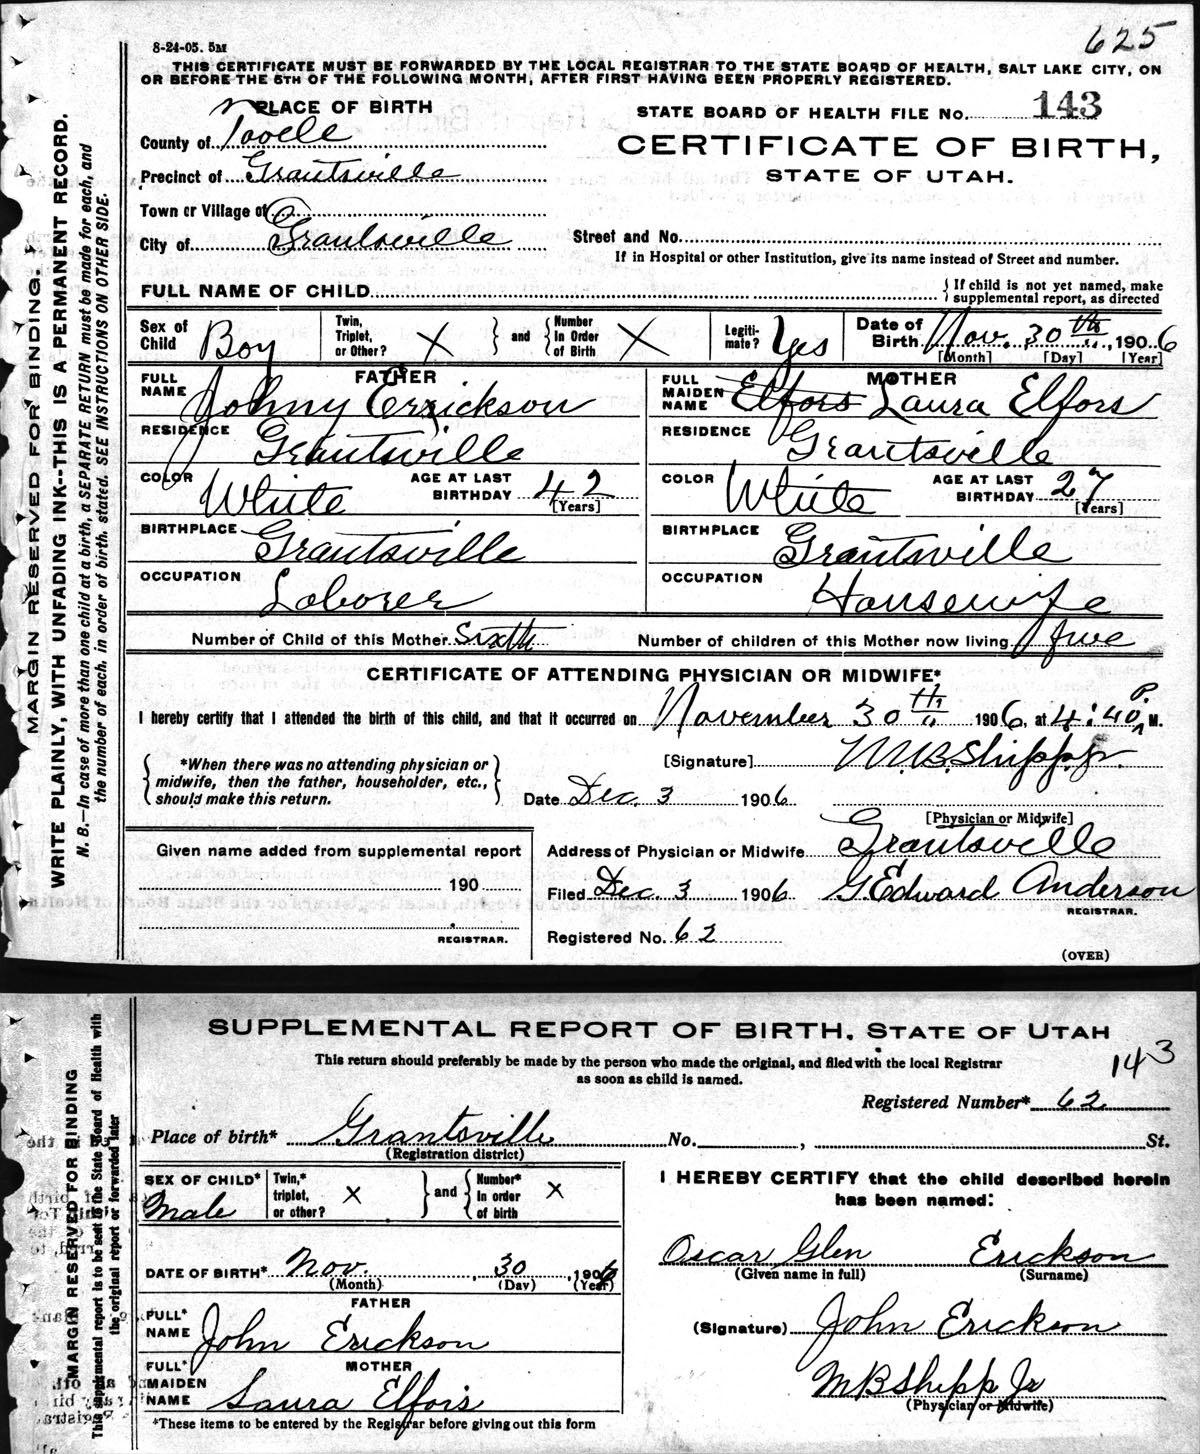 625
8-24-05. 5M
THIS CERTIFICATE MUST BE FORWARDED BY THE LOCAL REGISTRAR TO THE STATE BOARD OF HEALTH, SALT LAKE CITY, ON
OR BEFORE THE 5TH OF THE FOLLOWING MONTH, AFTER FIRST HAVING BEEN PROPERLY REGISTERED.
PLACE OF BIRTH
County of Tooele
Precinct of Grantsville
Town or Village of
City of Grantsville
STATE BOARD OF HEALTH FILE No. 143
CERTIFICATE OF BIRTH,
STATE OF UTAH.
Street and No.
If in Hospital or other Institution, give its name instead of Street and number.
FULL NAME OF CHILD { If child is not yet named, make
supplemental report, as directed
Sex of Child Boy Twin, Triplet, or Other? X } and { Number In Order of Birth X Legiti-mate? Yes Date of Birth Nov. 30th, 1906
[Month] [Day] [Year]
FATHER
FULL NAME Johny Errickson
RESIDENCE Grantsville
COLOR White AGE AT LAST BIRTHDAY 42
[Years]
BIRTHPLACE Grantsville
OCCUPATION Laborer
MOTHER
FULL MAIDEN NAME Elfors Laura Elfors
RESIDENCE Grantsville
COLOR White AGE AT LAST BIRTHDAY 27
[Years]
BIRTHPLACE Grantsville
OCCUPATION Housewife
Number of Child of this Mother Sixth Number of children of this Mother now living five
CERTIFICATE OF ATTENDING PHYSICIAN OR MIDWIFE*
I hereby certify that I attended the birth of this child, and that it occurred on November 30th 1906, at 4:40 P. M.
{ *When there was no attending physician or
midwife, then the father, householder, etc.,
should make this return. }
[Signature] M.B. Shipp Jr.
Date Dec. 3 1906
[Physician or Midwife]
Given name added from supplemental report
190
REGISTRAR.
Address of Physician or Midwife Grantsville
Filed Dec. 3 1906 G. Edward Anderson
REGISTRAR.
Registered No. 62
(OVER)
MARGIN RESERVED FOR BINDING.
WRITE PLAINLY, WITH UNFADING INK--THIS IS A PERMANENT RECORD.
N. B.—In case of more than one child at a birth, a SEPARATE RETURN must be made for each, and
the number of each, in order of birth, stated. SEE INSTRUCTIONS ON OTHER SIDE.
SUPPLEMENTAL REPORT OF BIRTH, STATE OF UTAH
This return should preferably be made by the person who made the original, and filed with the local Registrar
as soon as child is named.
143
Registered Number* 62
Place of birth* Grantsville No. , St.
(Registration district)
SEX OF CHILD* Male Twin,* triplet, or other? X } and { Number* In order of birth X
DATE OF BIRTH* Nov. 30, 1906
(Month) (Day) (Year)
FATHER
FULL* NAME John Erickson
MOTHER
FULL* MAIDEN NAME Laura Elfors
*These items to be entered by the Registrar before giving out this form
I HEREBY CERTIFY that the child described herein
has been named:
Oscar Glen Erickson
(Given name in full) (Surname)
(Signature) John Erickson
M B Shipp Jr
(Physician or Midwife)
MARGIN RESERVED FOR BINDING
This supplemental report is to be sent to the State Board of Health with
the original report or forwarded later